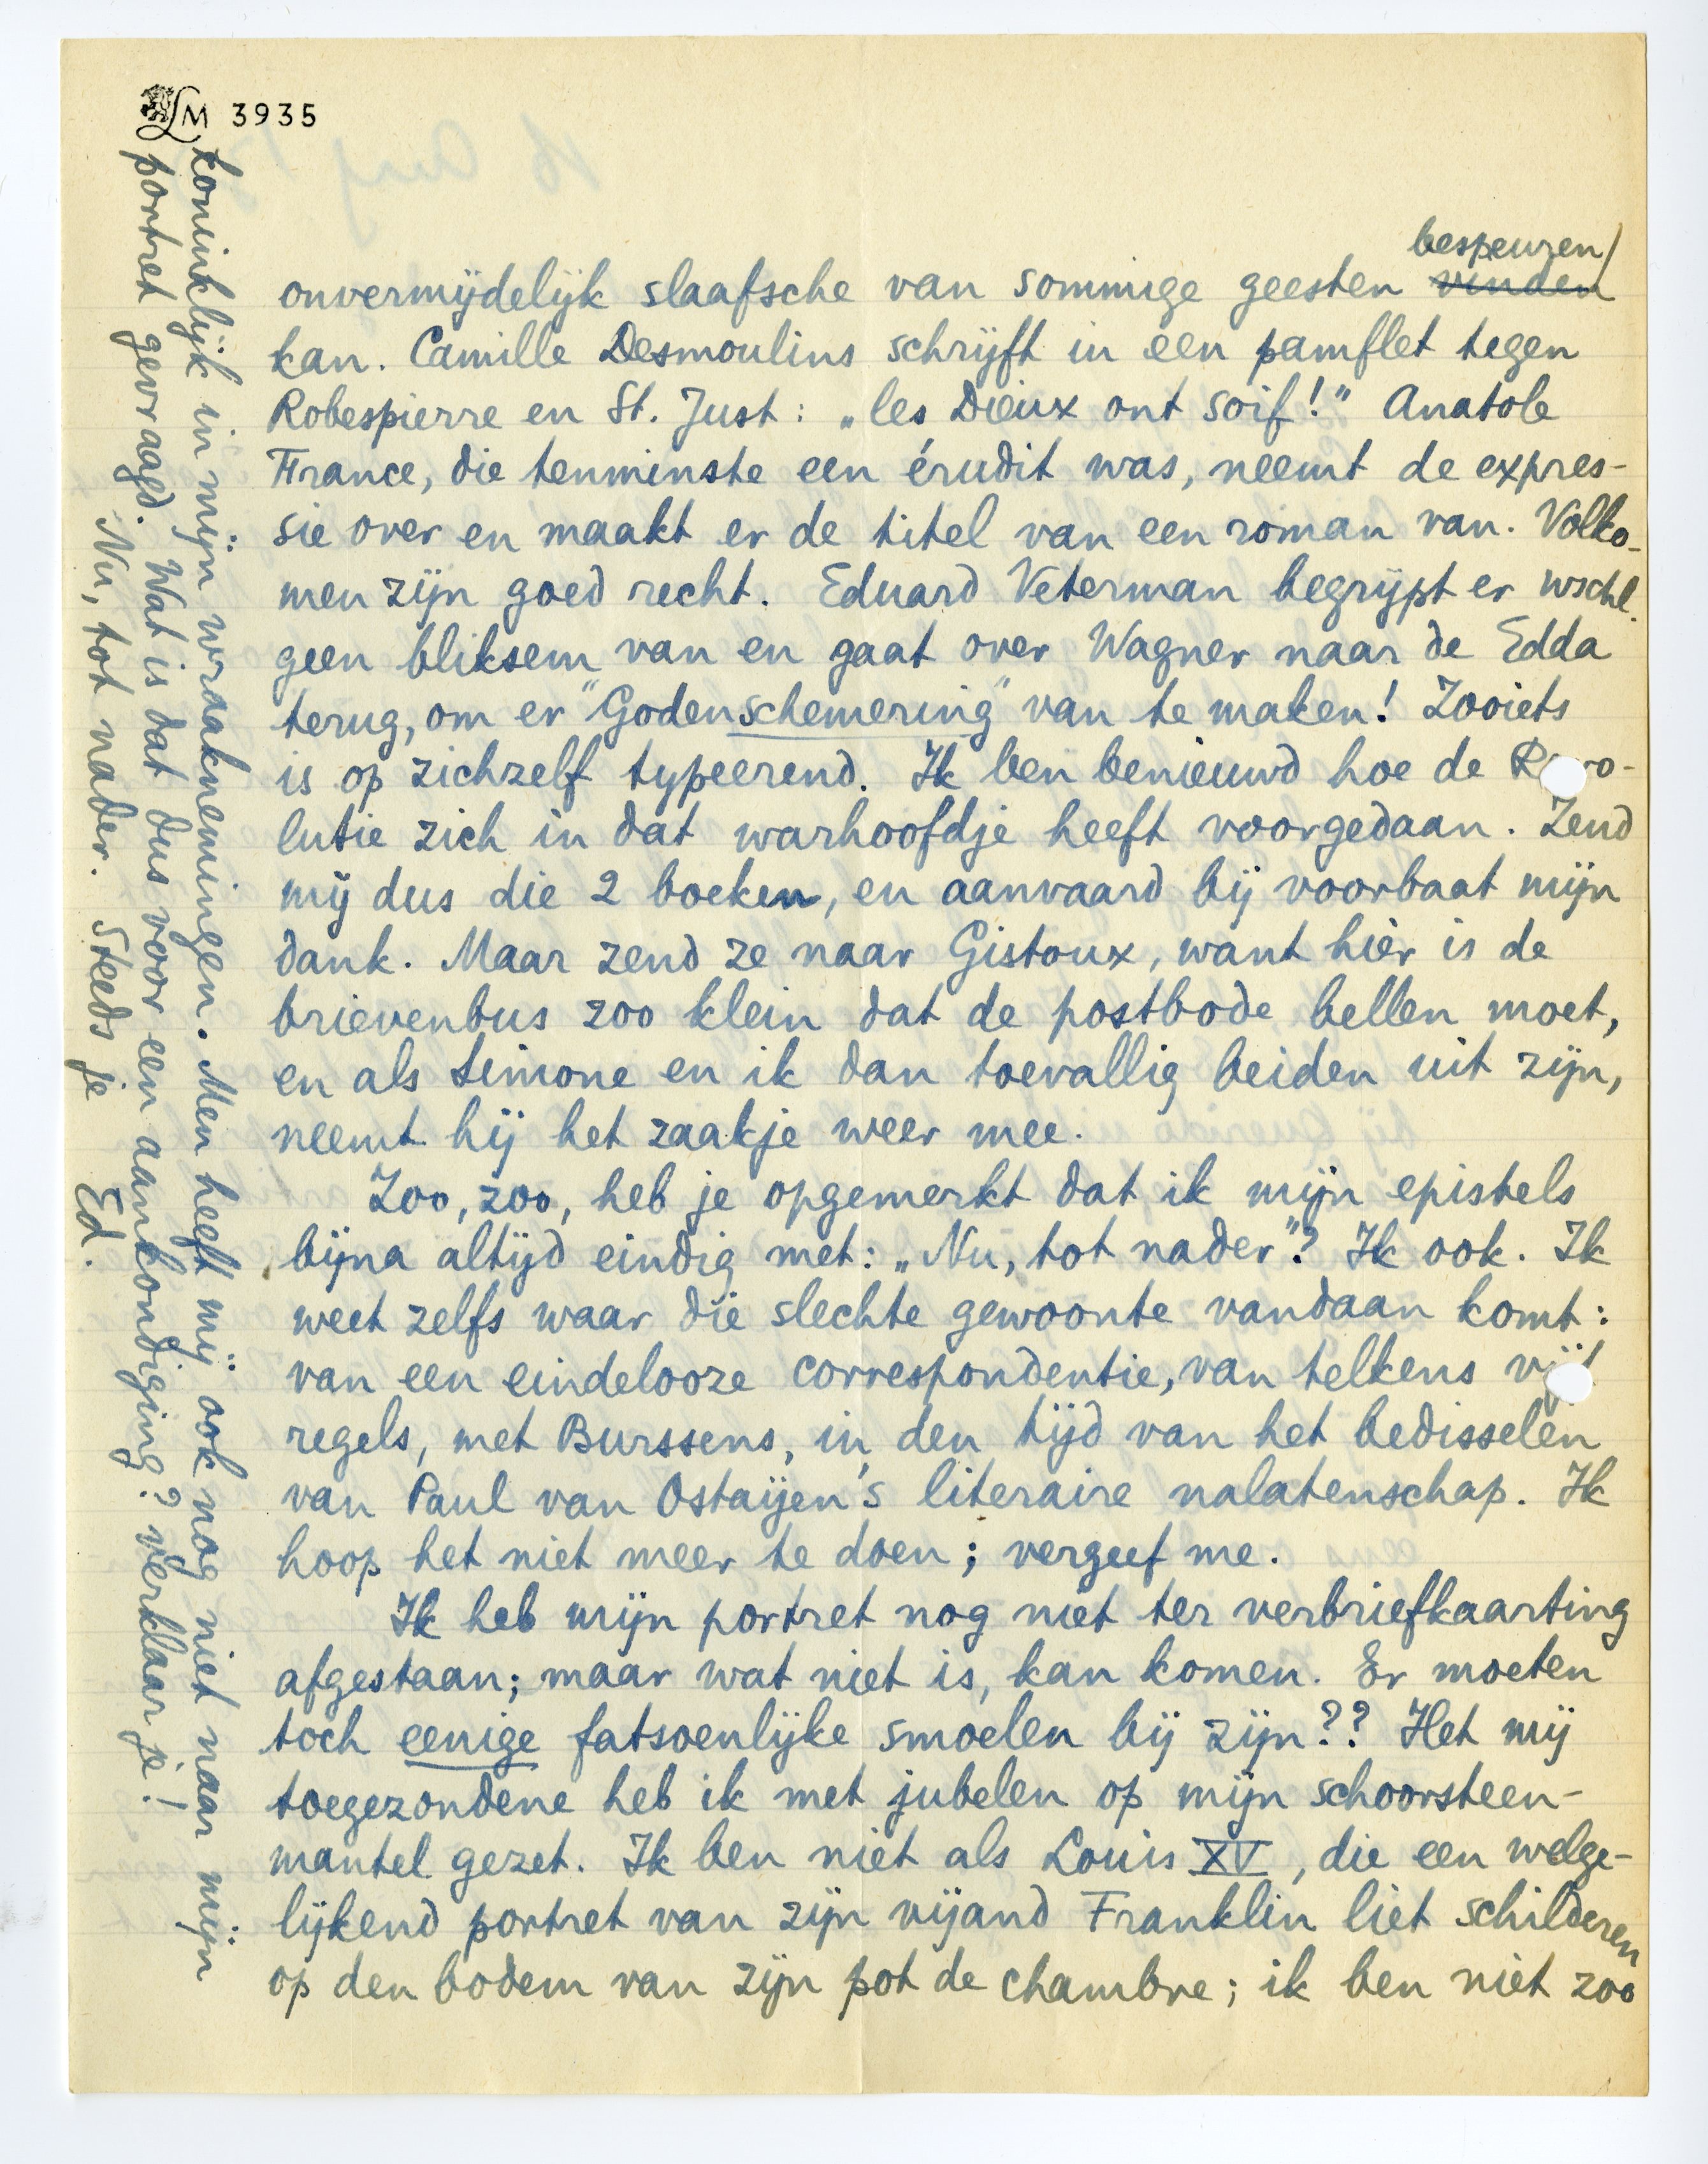 LM 3935
bespeuren/
onvermijdelijk slaafsche van sommige geesten vinden
kan. Camille Desmoulins schrijft in een pamflet tegen
Robespierre en St. Just: „les Dieux ont soif!" Anatole
France, die tenminste een érudit was, neemt de expres-
sie over en maakt er de titel van een roman van. Volko-
men zijn goed recht. Eduard Veterman begrijpt er wschl.
geen bliksem van en gaat over Wagner naar de Edda
terug, om er "Godenschemering" van te maken! Zooiets
is op zichzelf typeerend. Ik ben benieuwd hoe de Revo-
lutie zich in dat warhoofdje heeft voorgedaan. Zend
mij dus die 2 boeken, en aanvaard bij voorbaat mijn
dank. Maar zend ze naar Gistoux, want hier is de
brievenbus zoo klein dat de postbode bellen moet,
en als Simone en ik dan toevallig beiden uit zijn,
neemt hij het zaakje weer mee.
Zoo, zoo, heb je opgemerkt dat ik mijn epistels
bijna altijd eindig met: „Nu, tot nader"? Ik ook. Ik
weet zelfs waar die slechte gewoonte vandaan komt:
van een eindelooze correspondentie, van telkens vijf
regels, met Burssens, in den tijd van het bedisselen
van Paul van Ostaijen's literaire nalatenschap. Ik
hoop het niet meer te doen; vergeef me.
Ik heb mijn portret nog niet ter verbriefkaarting
afgestaan; maar wat niet is, kan komen. Er moeten
toch eenige fatsoenlijke smoelen bij zijn?? Het mij
toegezondene heb ik met jubelen op mijn schoorsteen-
mantel gezet. Ik ben niet als Louis XV, die een welge-
lijkend portret van zijn vijand Franklin liet schilderen
op den bodem van zijn pot de chambre; ik ben niet zoo
koninklijk in mijn wraaknemingen. Men heeft mij ook nog niet naar mijn
portret gevraagd. Wat is dat dus voor een aankondiging? verklaar je!
Nu, tot nader. Steeds je
Ed.